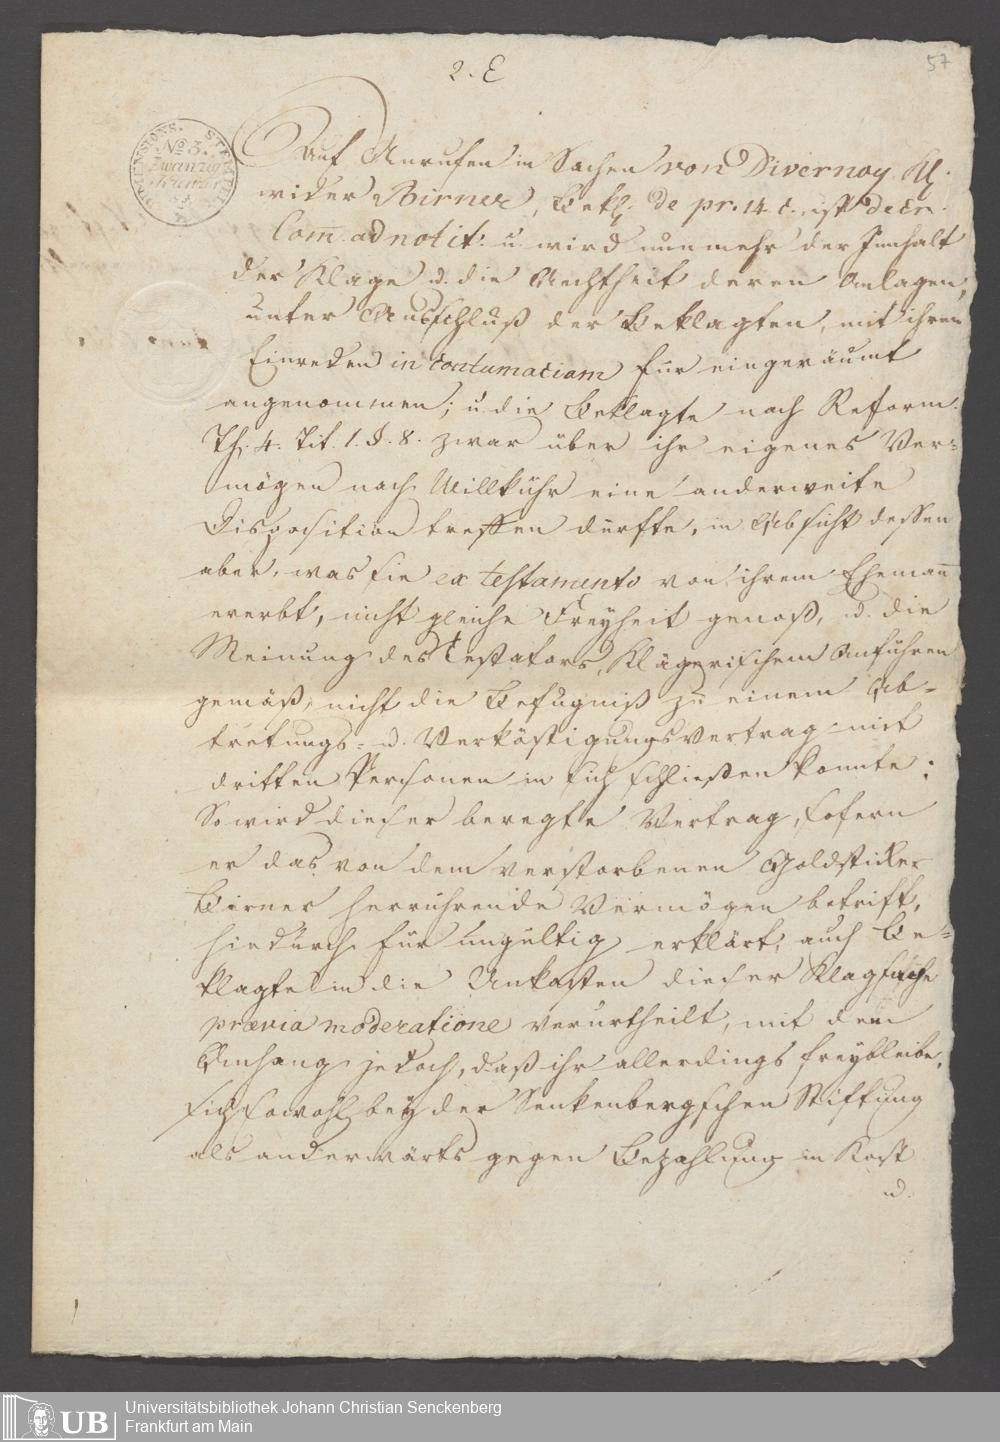 2. E
57
No 3.
Zwanzig
Kreuzer
Auf Anrufen in Sachen von Divernoy, Kl.
wider Birner, Bekl. de pr. 14. c. ist decr.
Com̄. ad notit. u. wird nunmehr der Innhalt
der Klage u. die Aechtheit deren Anlagen,
unter Ausschluß der Beklagten, mit ihren
Einreden in contumaciam für eingeräumt
angenommen; u. die Beklagte nach Reform.
Th. 4. Tit. 1. §. 8. zwar über ihr eigenes Ver-
mögen nach Willkühr eine anderweite
Disposition treffen durfte, in Absicht dessen
aber, was sie ex testamento von ihrem Ehemann
ererbt, nicht gleiche Freyheit genoß, u. die
Meinung des Testators, Klägerischem Anführen
gemäß, nicht die Befugniß zu einem Ab-
tretungs- u. Verköstigungsvertrag mit
dritten Personen in sich schließen konnte:
So wird dieser beregte Vertrag, sofern
er das von dem verstorbenen Goldsticker
Birner herrührende Vermögen betrift,
hiedurch für ungültig erklärt, auch Be-
klagte in die Unkosten dieser Klagsache
praevia moderatione verurtheilt, mit dem
Anhang jedoch, daß ihr allerdings freybleibe,
sich sowohl bey der Senkenbergschen Stiftung
als anderwärts gegen Bezahlung in Kost
u.
UB
Universitätsbibliothek Johann Christian Senckenberg
Frankfurt am Main